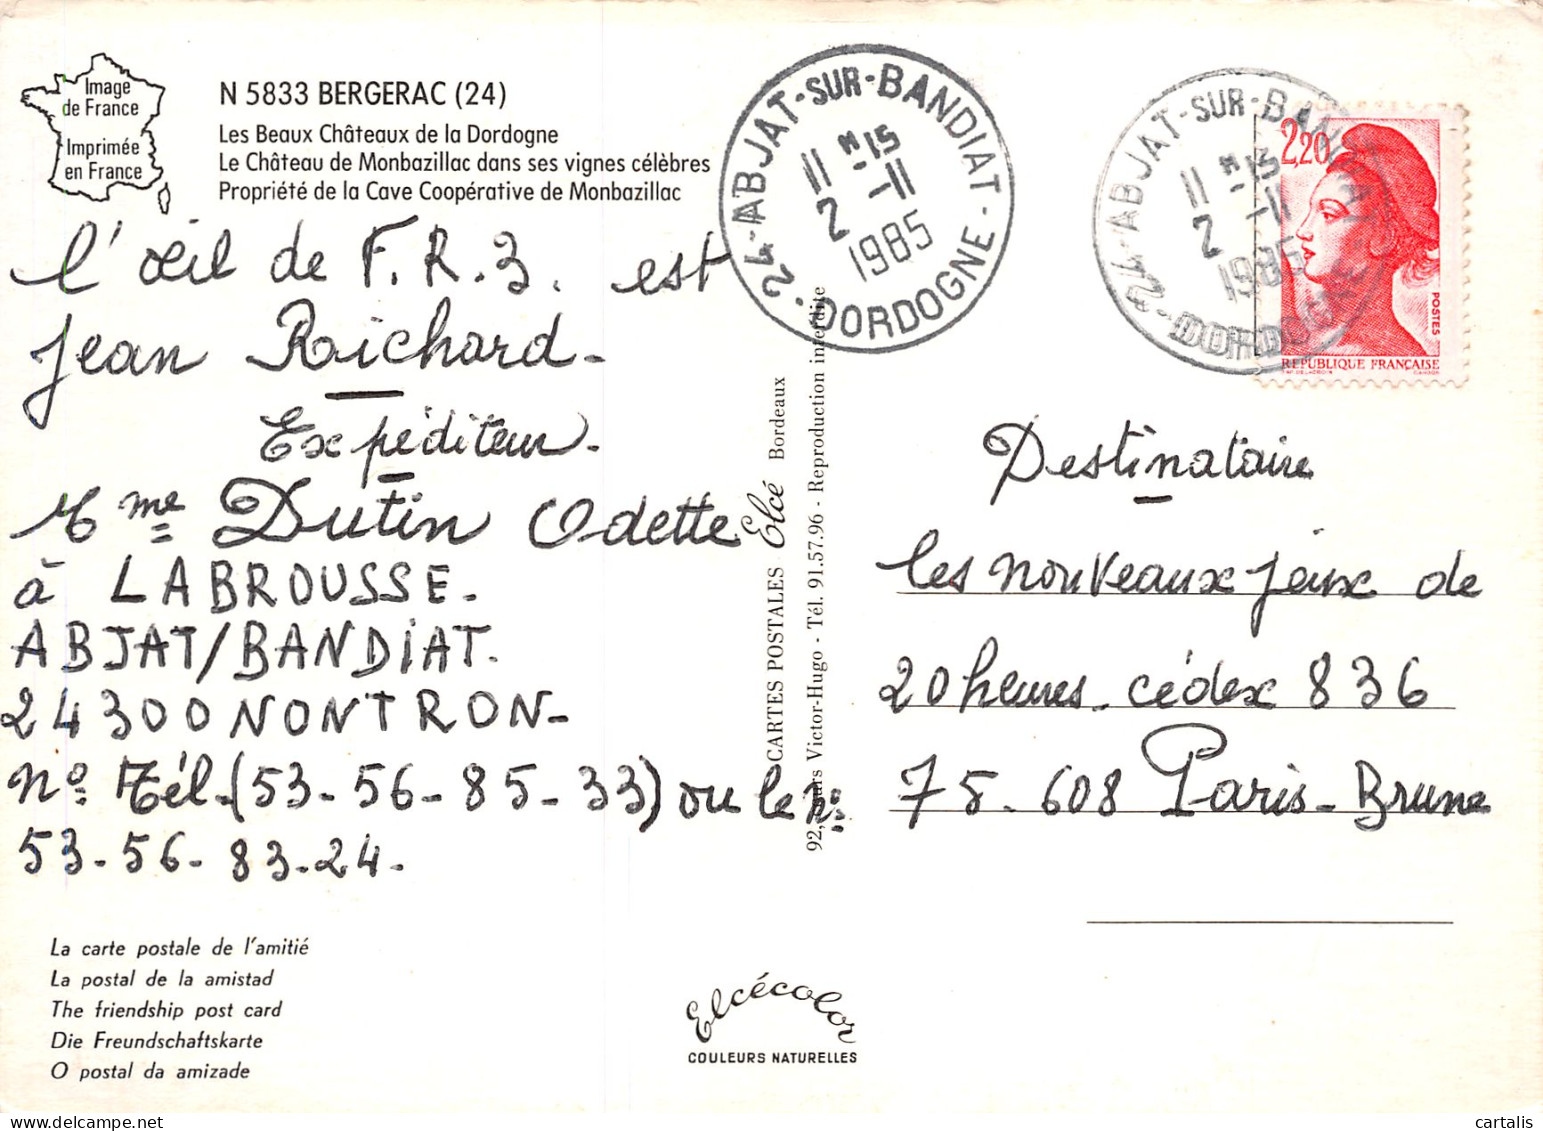 Image
de France
Imprimée
en France
N 5833 BERGERAC (24)
Les Beaux Châteaux de la Dordogne
Le Château de Monbazillac dans ses vignes célèbres
Propriété de la Cave Coopérative de Monbazillac
l'œil de F.R.3. est
Jean Raichard-
Expéditeur-
Mme Dutin Odette
à LABROUSSE.
ABJAT/BANDIAT.
24300 NONTRON-
no. Tél-(53-56-85-33) ou le no:
53-56-83-24-
La carte postale de l'amitié
La postal de la amistad
The friendship post card
Die Freundschaftskarte
O postal da amizade
24-ABJAT-SUR-BANDIAT-
DORDOGNE-
11 H 15
2 -11
1985
CARTES POSTALES Elcé Bordeaux
92, cours Victor-Hugo - Tél. 91.57.96 - Reproduction interdite
Elcécolor
COULEURS NATURELLES
24-ABJAT-SUR-BANDIAT-
DORDOGNE-
11 H 15
2 -11
1985
2,20
POSTES
REPUBLIQUE FRANÇAISE
Destinataire
les nouveaux jeux de
20 heures. cédex 836
75-608 Paris-Brune
cartalis